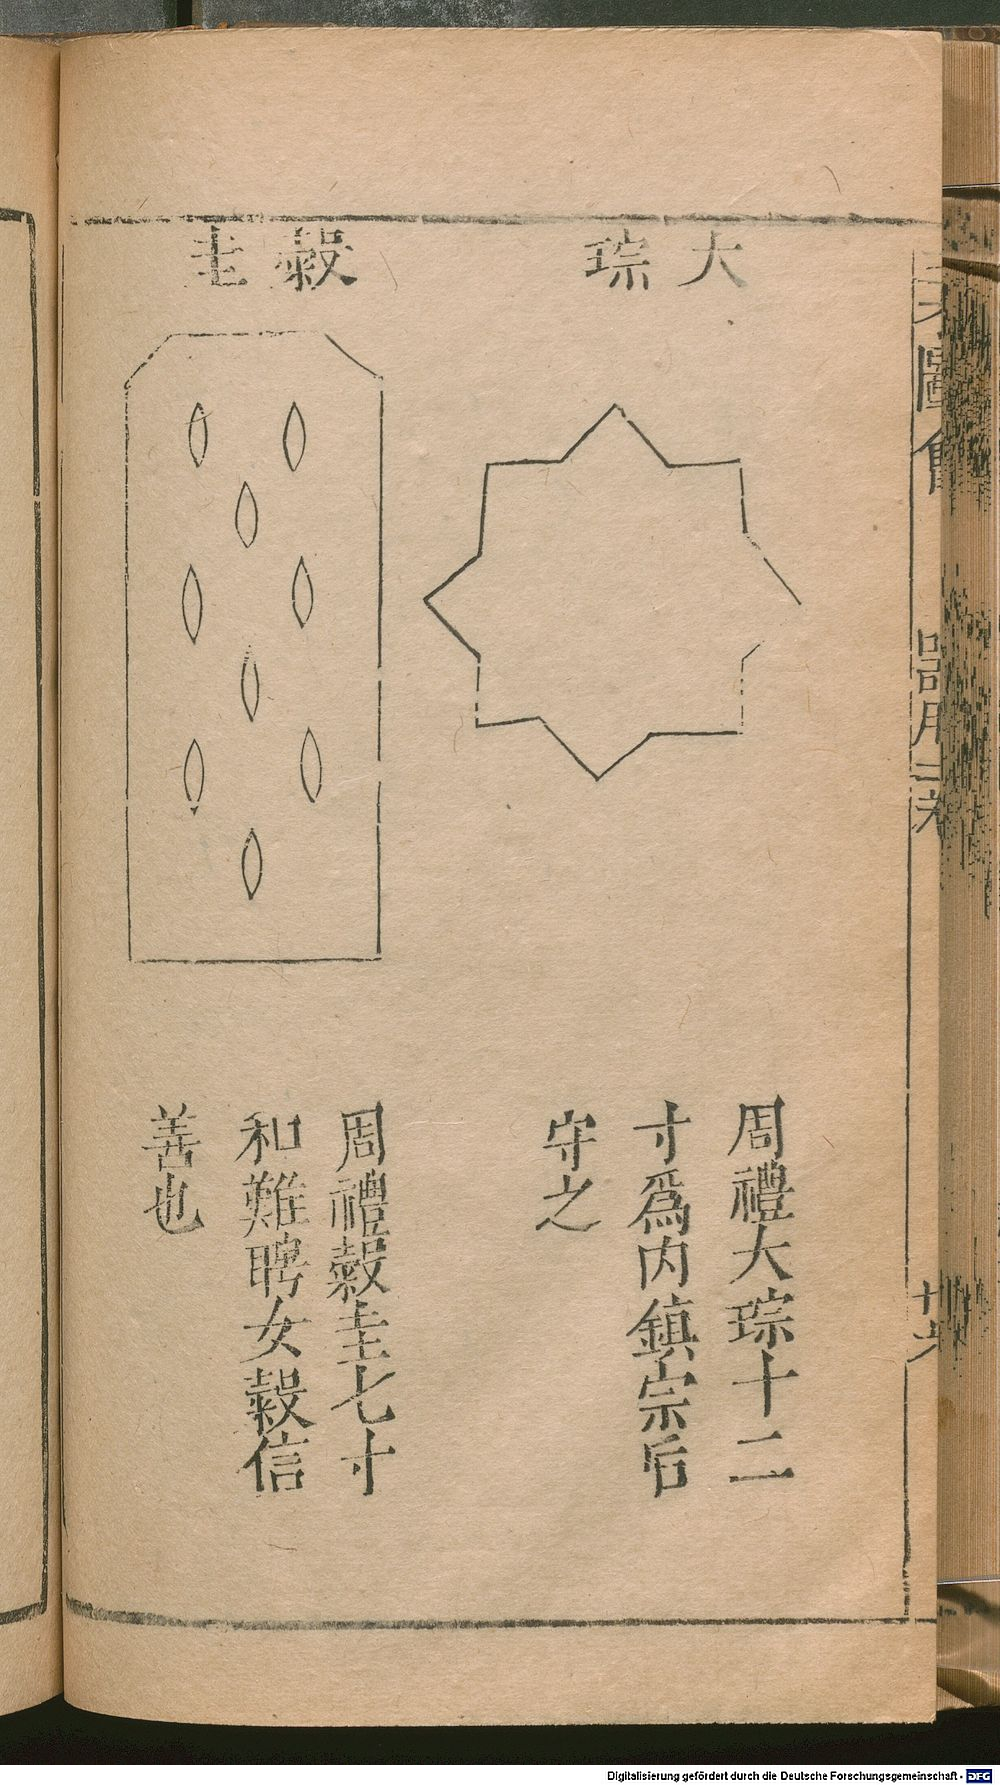 大琮
周禮大琮十二
寸爲内鎮宗后
守之
穀圭
周禮穀圭七寸
和難聘女穀信
善也
圖會
器用
Digitalisierung gefördert durch die Deutsche Forschungsgemeinschaft - DFG